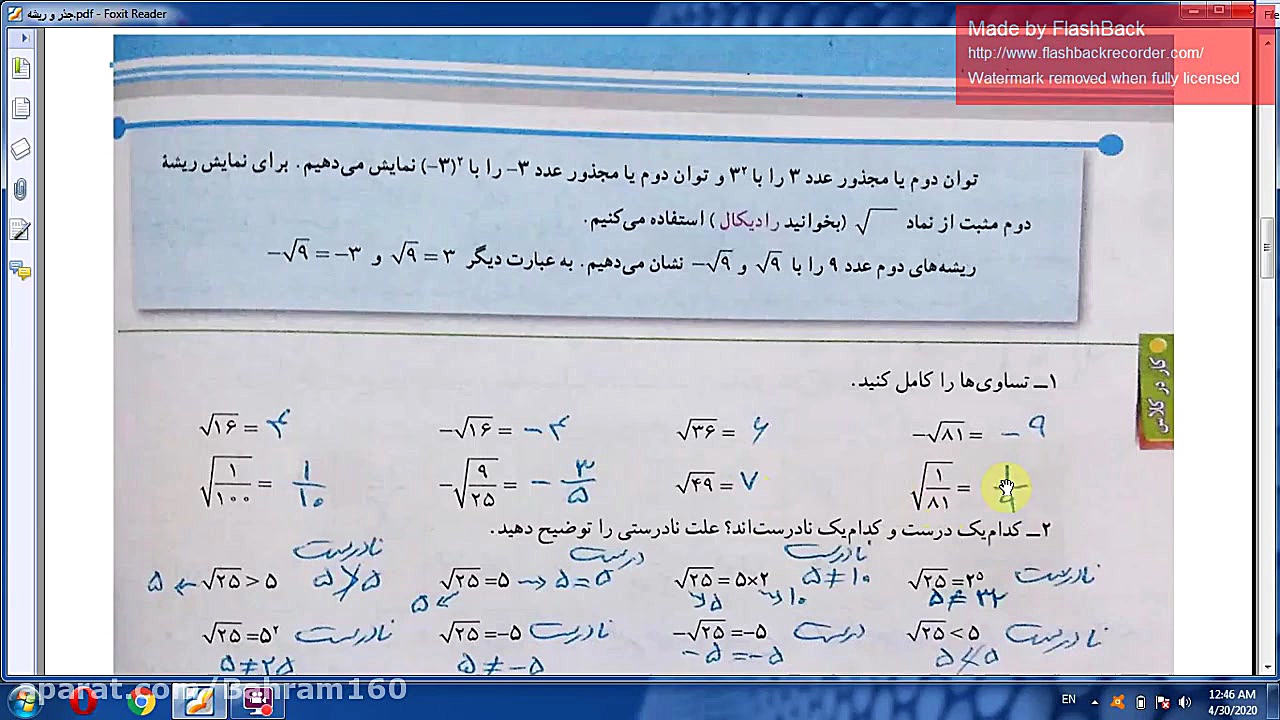 جذر و ریشه.pdf - Foxit Reader
File
Made by FlashBack
http://www.flashbackrecorder.com/
Watermark removed when fully licensed
توان دوم یا مجذور عدد ۳ را با ۳² و توان دوم یا مجذور عدد ۳− را با ²(۳−) نمایش می‌دهیم. برای نمایش ریشهٔ
دوم مثبت از نماد √ (بخوانید رادیکال) استفاده می‌کنیم.
ریشه‌های دوم عدد ۹ را با √۹ و −√۹ نشان می‌دهیم. به عبارت دیگر √۹ = ۳ و −√۹ = −۳
کار در کلاس
۱ــ تساوی‌ها را کامل کنید.
√۱۶ = ۴ −√۱۶ = −۴ √۳۶ = ۶ −√۸۱ = −۹
√(۱/۱۰۰) = ۱/۱۰ −√(۹/۲۵) = −۳/۵ √۴۹ = ۷ √(۱/۸۱) = ۱/۹
۲ــ کدام‌یک درست و کدام‌یک نادرست‌اند؟ علت نادرستی را توضیح دهید.
نادرست درست نادرست
۵ ← √۲۵ > ۵ ۵ ≯ ۵ √۲۵ = ۵ → ۵ = ۵ √۲۵ = ۵×۲ ۵ ≠ ۱۰ √۲۵ = ۲⁵ نادرست
۵ ↙ ↘۵ ↘۱۰ ۵ ≠ ۳۲
√۲۵ = ۵² نادرست √۲۵ = −۵ نادرست −√۲۵ = −۵ درست √۲۵ < ۵ نادرست
۵ ≠ ۲۵ ۵ ≠ −۵ −۵ = −۵ ۵ ≮ ۵
aparat.com/Bahram160
EN
12:46 AM
4/30/2020